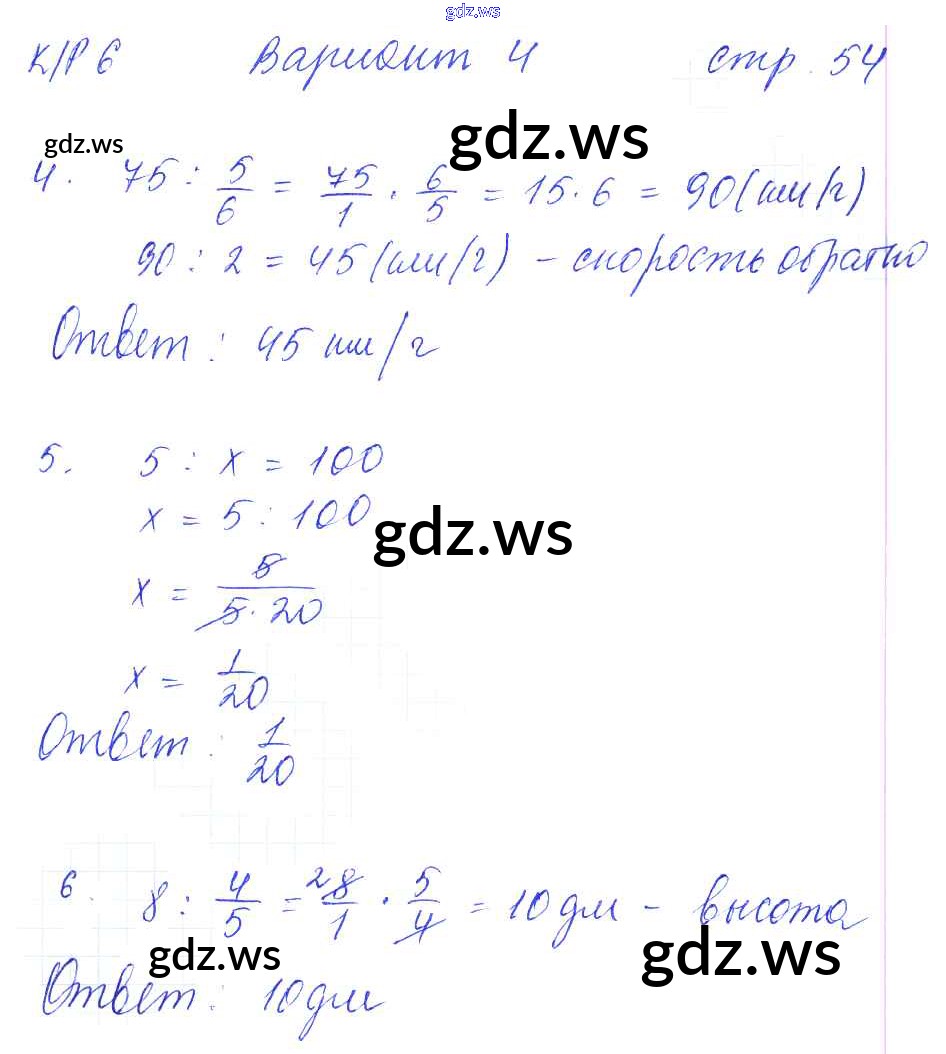 gdz.ws
К/Р 6 Вариант 4 стр. 54
gdz.ws gdz.ws
4. 75 : 5/6 = 75/1 · 6/5 = 15 · 6 = 90 (км/г)
90 : 2 = 45 (км/г) - скорость обратно
Ответ: 45 км/г
5. 5 : x = 100
x = 5 : 100
gdz.ws
x = 5/(5 · 20)
x = 1/20
Ответ: 1/20
6. 8 : 4/5 = 2 8/1 · 5/4 = 10 дм - высота
gdz.ws gdz.ws
Ответ: 10 дм